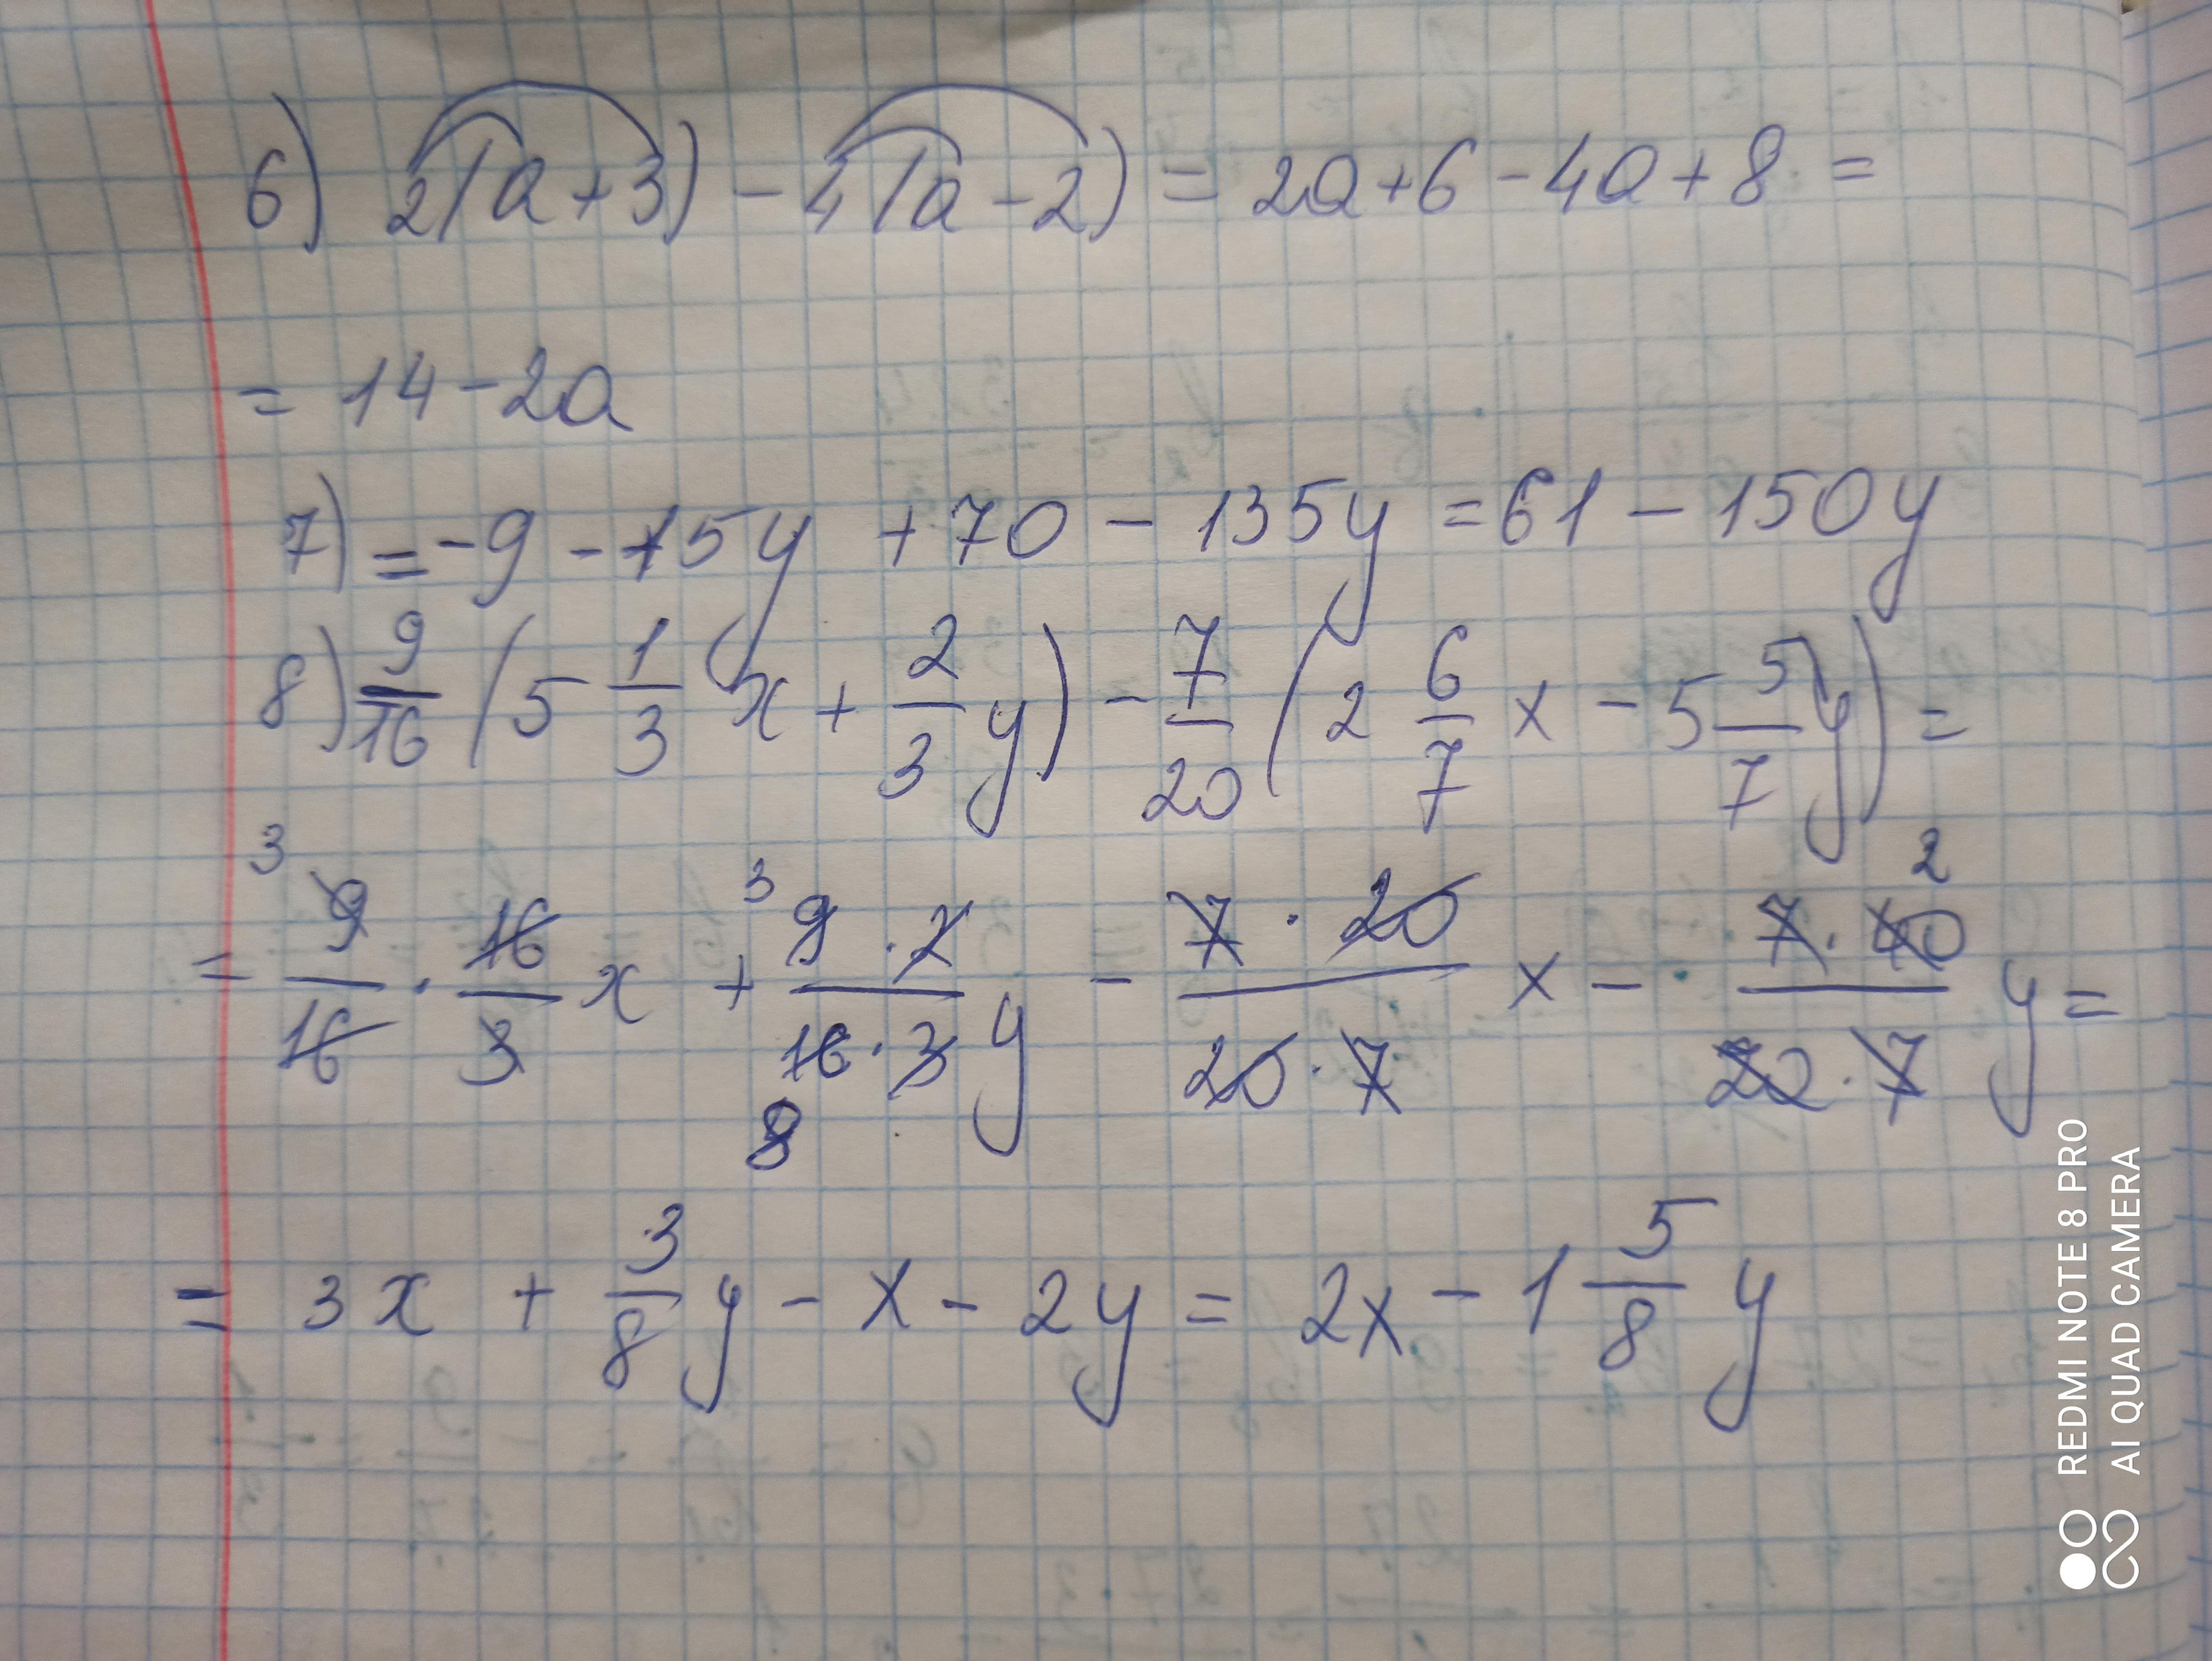 6) 2(a+3) - 4(a-2) = 2a+6-4a+8 =
= 14-2a
7) = -9 - 15y + 70 - 135y = 61 - 150y
8) 9/16 (5 1/3 x + 2/3 y) - 7/20 (2 6/7 x - 5 5/7 y) =
= 9/16 · 16/3 x + 9·2/16·3 y - 7·20/20·7 x - 7·40/20·7 y =
= 3x + 3/8 y - x - 2y = 2x - 1 5/8 y
REDMI NOTE 8 PRO
AI QUAD CAMERA